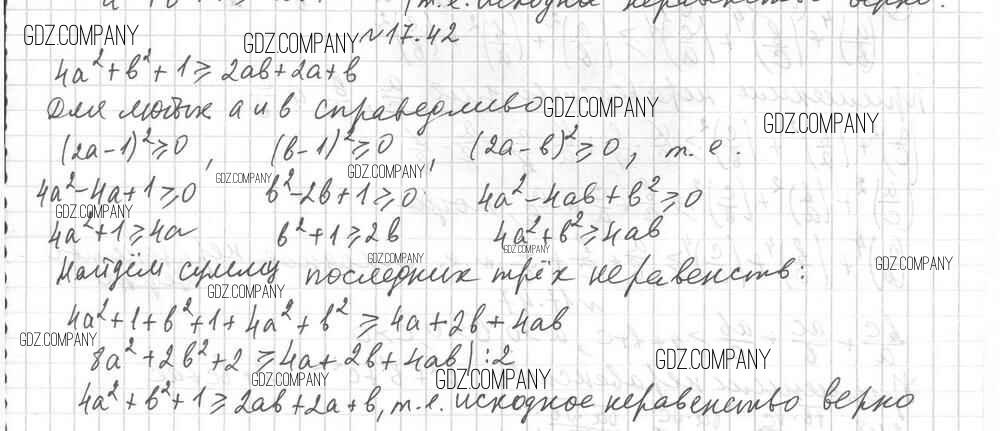 т.е. исходное неравенство верно.
GDZ.COMPANY GDZ.COMPANY №17.42
4a² + b² + 1 ≥ 2ab + 2a + b
Для любых a и b справедливо GDZ.COMPANY
GDZ.COMPANY
(2a-1)² ≥ 0, (b-1)² ≥ 0, (2a-b)² ≥ 0, т.е.
GDZ.COMPANY GDZ.COMPANY
4a² - 4a + 1 ≥ 0 b² - 2b + 1 ≥ 0 4a² - 4ab + b² ≥ 0
GDZ.COMPANY
4a² + 1 ≥ 4a b² + 1 ≥ 2b 4a² + b² ≥ 4ab
GDZ.COMPANY GDZ.COMPANY GDZ.COMPANY
Найдём сумму последних трёх неравенств:
GDZ.COMPANY
4a² + 1 + b² + 1 + 4a² + b² ≥ 4a + 2b + 4ab
GDZ.COMPANY
8a² + 2b² + 2 ≥ 4a + 2b + 4ab | :2
GDZ.COMPANY
GDZ.COMPANY GDZ.COMPANY
4a² + b² + 1 ≥ 2ab + 2a + b, т.е. исходное неравенство верно